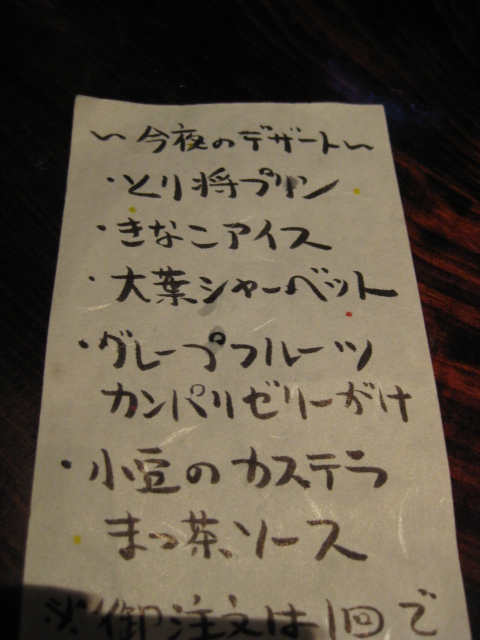 ～今夜のデザート～
・とり将プリン
・きなこアイス
・大葉シャーベット
・グレープフルーツ
カンパリゼリーがけ
・小豆のカステラ
まっ茶ソース
※御注文は1回で